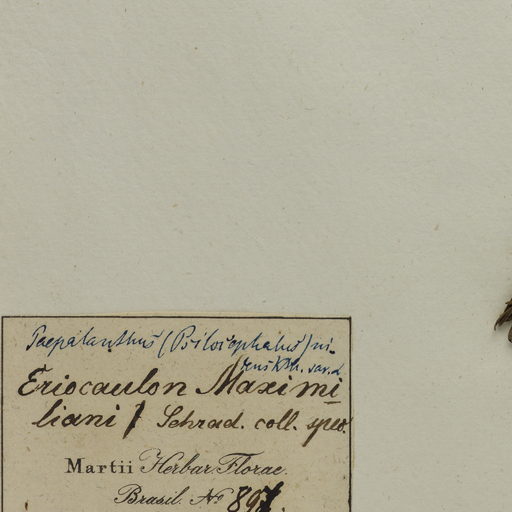 Paepalanthus (Psilocephalus) ni-
tens Kth. var. α
Eriocaulon Maximi
liani / Schrad. coll. spec.
Martii Herbar. Florae
Brasil. No 897.